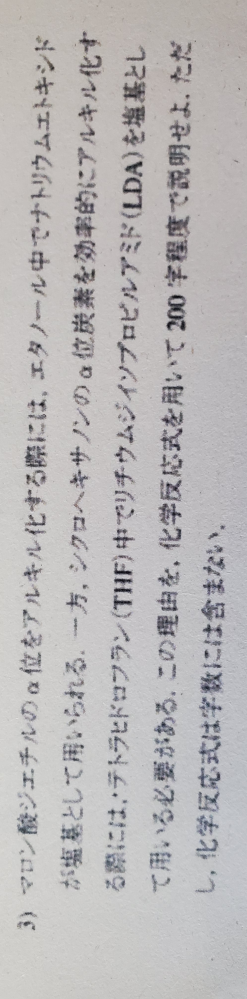 3) マロン酸ジエチルのα位をアルキル化する際には, エタノール中でナトリウムエトキシド
が塩基として用いられる. 一方, シクロヘキサノンのα位炭素を効率的にアルキル化す
る際には, テトラヒドロフラン(THF)中でリチウムジイソプロピルアミド(LDA)を塩基とし
て用いる必要がある. この理由を, 化学反応式を用いて 200 字程度で説明せよ. ただ
し, 化学反応式は字数には含まない.